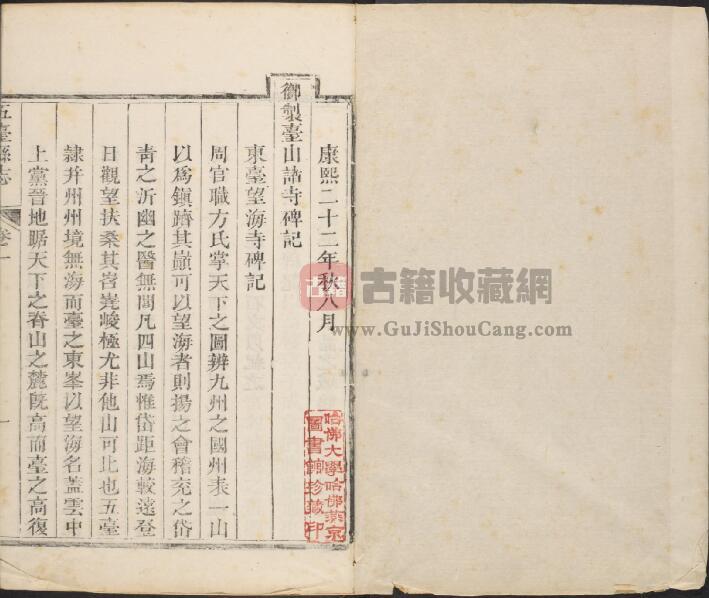 康熙二十二年秋八月
御製臺山諸寺碑記
東臺望海寺碑記
周官職方氏掌天下之圖辨九州之國州表一山
以爲鎭躋其巔可以望海者則揚之會稽兖之岱
靑之沂幽之醫無閭凡四山焉惟岱距海較遠登
日觀望扶桑其岧嶤峻極尤非他山可比也五臺
隸并州州境無海而臺之東峯以望海名蓋雲中
上黨晉地踞天下之脊山之麓旣高而臺之高復
五臺縣志 卷一 一
哈佛大學哈佛燕京
圖書館珍藏印
古籍 古籍收藏網
www.GuJiShouCang.com